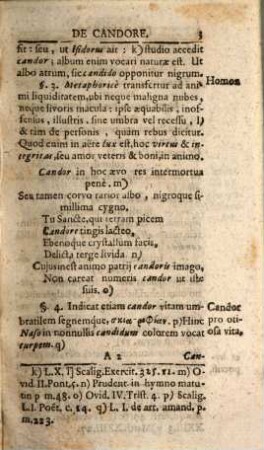 DE CANDORE. 3
fit: seu, ut Isidorus ait: k) studio accedit
candor; album enim vocari naturæ est. Ut
albo atrum, sic candido opponitur nigrum.
§. 3. Metaphoricè transfertur ad ani-
Homos
mi liquiditatem, ubi neque maligna nubes,
neque livoris macula: ipse æquabilis, inof-
fensus, illustris, sine umbra vel recessu, l)
& tàm de personis, quàm rebus dicitur.
Quod enim in aëre lux est, hoc virtus & in-
tegritas, seu amor veteris & boni, in animo.
Candor in hoc ævo res intermortua
penè. m)
Seu tamen corvo rarior albo, nigroque si-
millima cygno,
Tu Sancte, qui terram picem
Candore tingis lacteo,
Ebenoque crystallum facis,
Delicta terge livida n)
Cujus inest animo patrij candoris imago,
Non careat numeris candor ut iste
suis. o)
§. 4. Indicat etiam candor vitam um-
Candor
bratilem segnemque, p) Hinc
pro oti-
Naso in nonnullis candidum colorem vocat
osa vita,
turpem. q)
A 2 Can-
k) L.X. l) Scalig. Exercit. 325. 11. m) O-
vid. II. Pont. 5. n) Prudent. in hymno matu-
tin p m. 48. o) Ovid. IV. Trist. 4. p) Scalig.
L.I. Poët. c. 14. q) L. I. de art. amand. p.
m. 223.